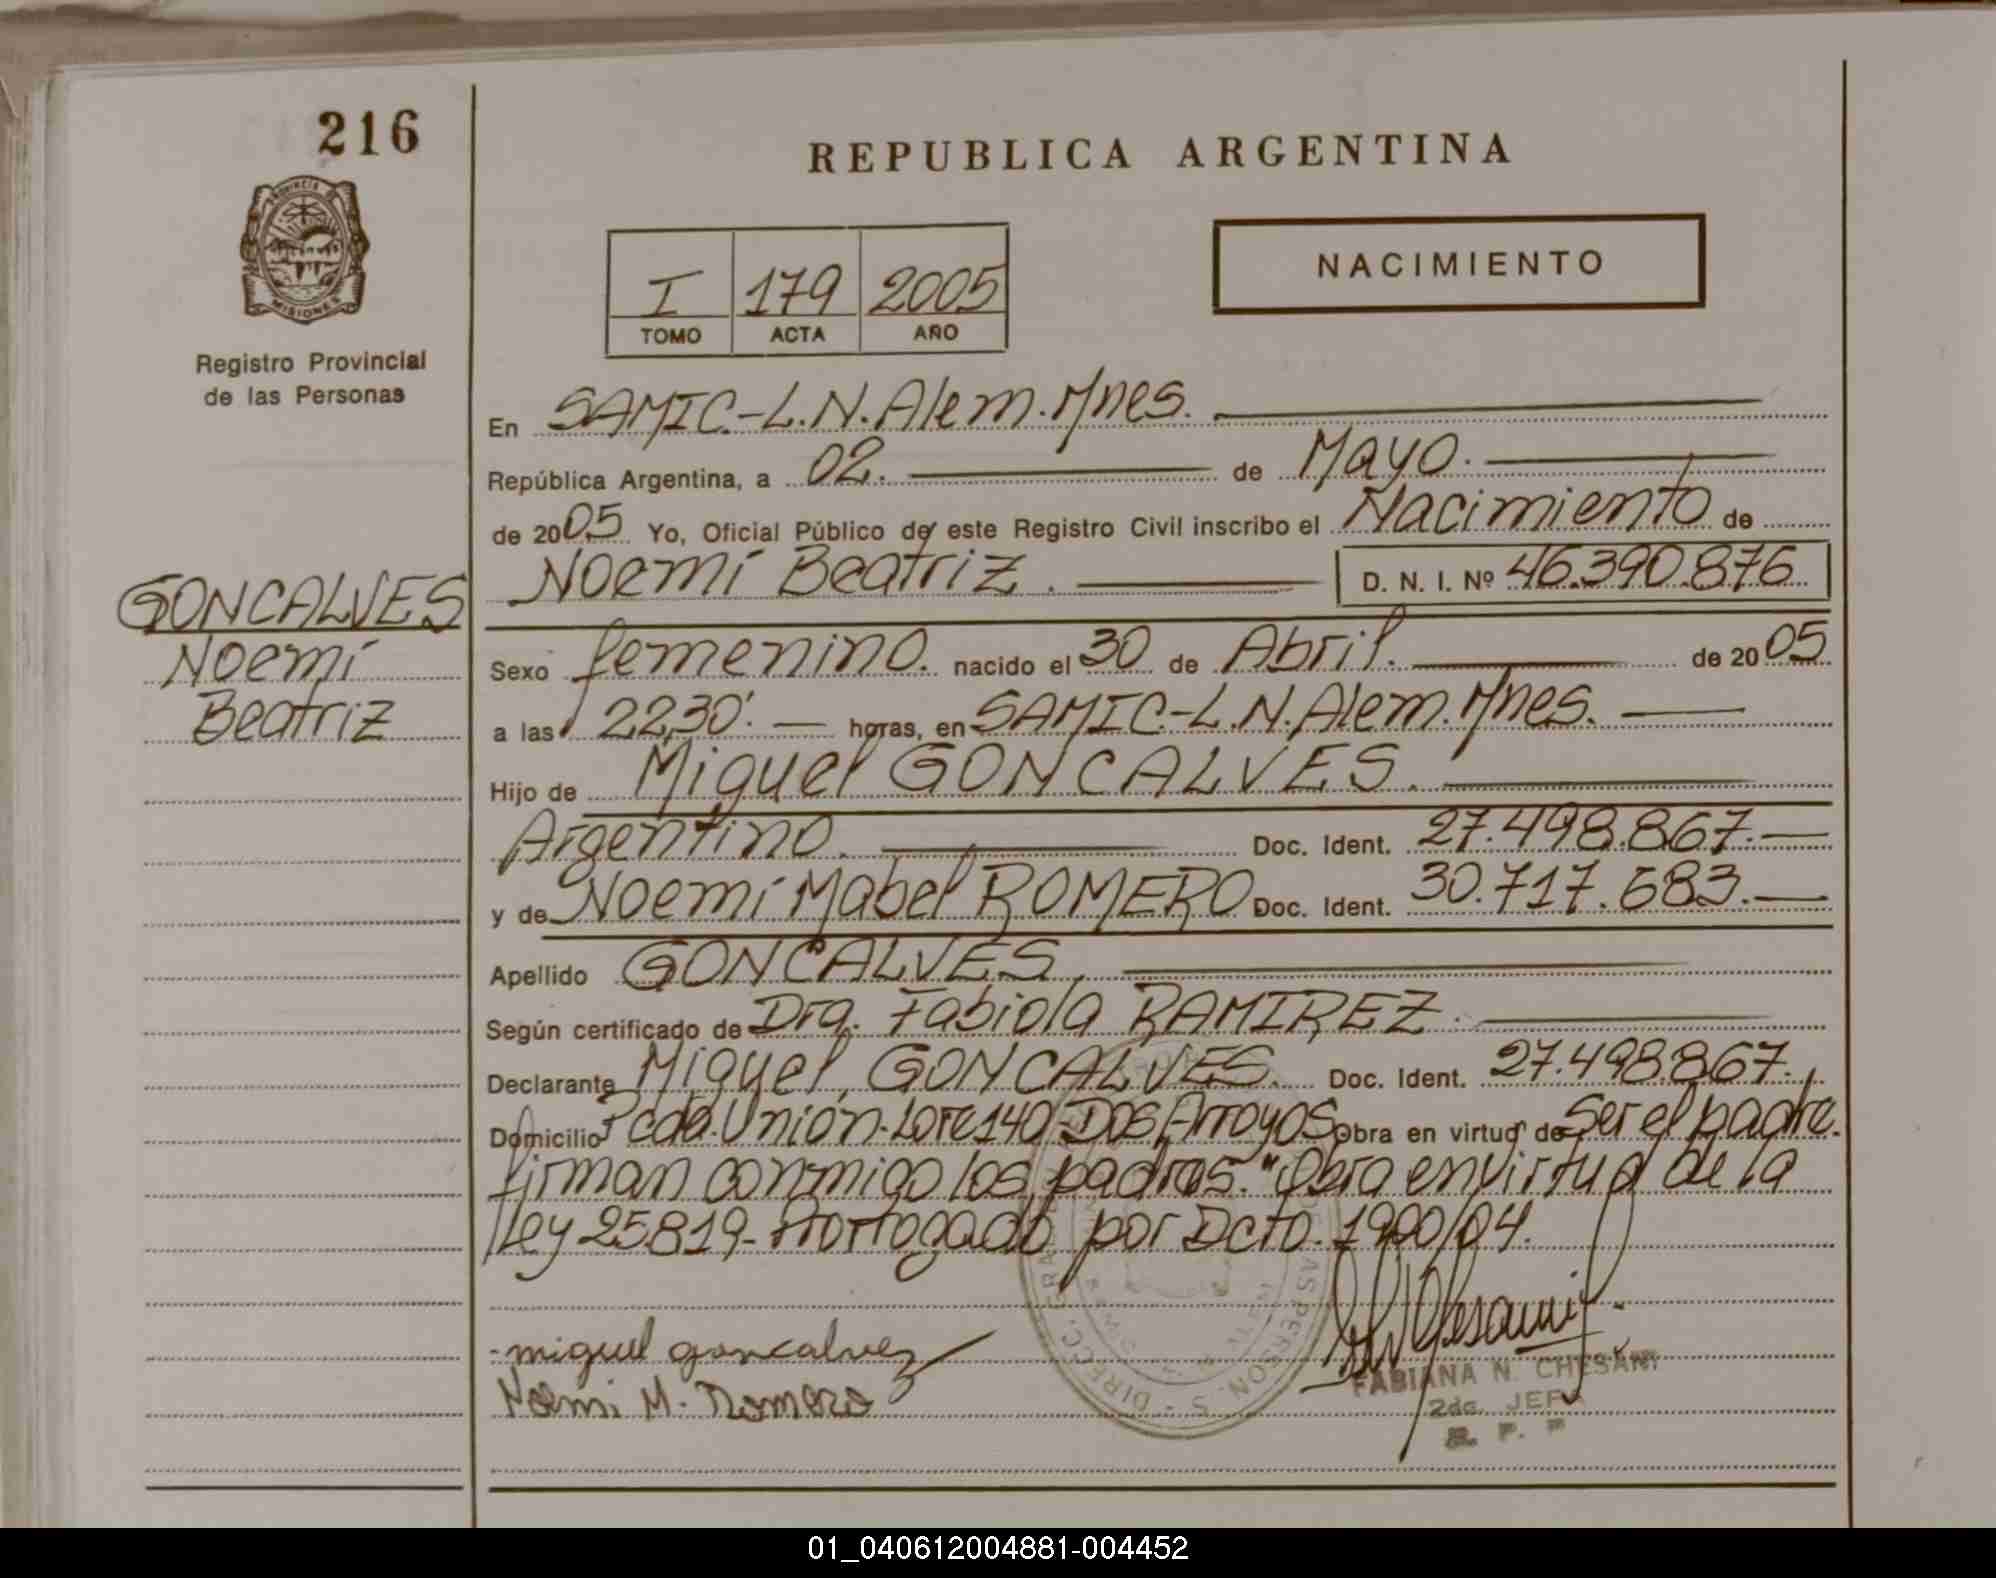 216
REPUBLICA ARGENTINA
PROVINCIA DE
MISIONES
Registro Provincial
de las Personas
NACIMIENTO
I 179 2005
TOMO ACTA AÑO
En SAMIC.-L.N.Alem.Mnes.
República Argentina, a 02. de Mayo.
de 2005 Yo, Oficial Público de este Registro Civil inscribo el Nacimiento de
Noemí Beatriz. D. N. I. Nº 46.390.876
GONCALVES
Noemí
Beatriz
Sexo femenino. nacido el 30 de Abril. de 2005
a las 22,30'. horas, en SAMIC.-L.N.Alem.Mnes.
Hijo de Miguel GONCALVES.
Argentino. Doc. Ident. 27.498.867.
y de Noemí Mabel ROMERO Doc. Ident. 30.717.683.
Apellido GONCALVES.
Según certificado de Dra. Fabiola RAMIREZ.
Declarante Miguel GONCALVES. Doc. Ident. 27.498.867.
Domicilio Pcda. Unión-Lote 140-Dos Arroyos Obra en virtud de Ser el padre.
firman conmigo los padres. "Obra en virtud de la
Ley 25819- Prorrogado por Dcto. 1900/04.
-miguel goncalvez
Noemi M. Romero
FABIANA N. CHESANI
2da. JEFA
R. P. P
01_040612004881-004452